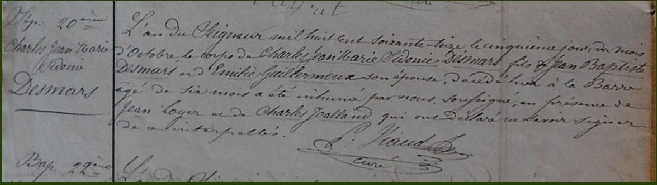 Sép. 20ème
Charles Jean Marie
Sédonie
Desmars
L'an du Seigneur mil huit cent soixante-seize le cinquième jour du mois
d'Octobre, le corps de Charles Jean Marie Sédonie Desmars fils de Jean Baptiste
Desmars et d'Emilie Guillermoux son épouse, décédé hier à la Barre
agé de six mois a été inhumé par nous, soussigné, en présence de
Jean Loyer et de Charles Joalland qui ont déclaré ne savoir signer
de ce interpellés.
P. Viaud
curé
Bap. 22ème
L'an du